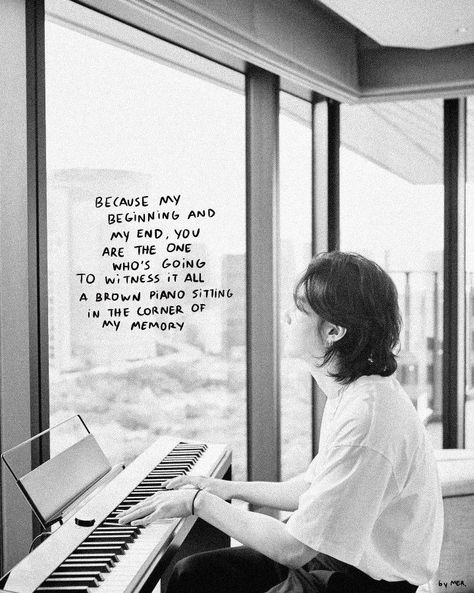 BECAUSE MY
BEGINNING AND
MY END, YOU
ARE THE ONE
WHO'S GOING
TO WITNESS IT ALL
A BROWN PIANO SITTING
IN THE CORNER OF
MY MEMORY
by MER.